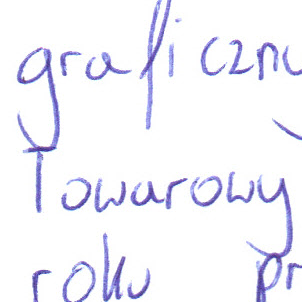 graficzny
Towarowy
roku pr